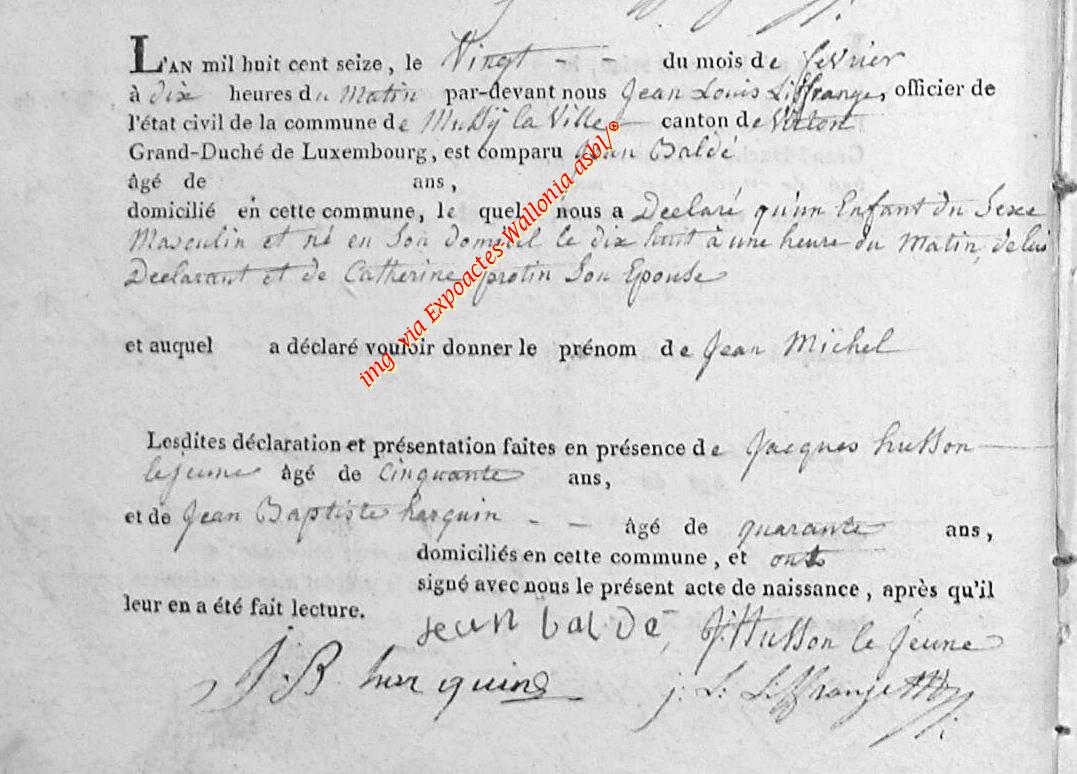 L'AN mil huit cent seize, le Vingt - - du mois de fevrier
à dix heures du Matin par-devant nous Jean Louis Liffrange, officier de
l'état civil de la commune de Mussÿ la Ville canton de Virton
Grand-Duché de Luxembourg, est comparu Jean Baldé
âgé de ans,
domicilié en cette commune, le quel nous a Declaré qu'un Enfant du Sexe
Masculin et né en Son domicil le dix huit à une heure du Matin, de lui
Declarant et de Catherine protin Son Epouse
et auquel a déclaré vouloir donner le prénom de Jean Michel
Lesdites déclaration et présentation faites en présence de Jacques husson
le jeune âgé de Cinquante ans,
et de Jean Baptiste harquin - - âgé de quarante ans,
domiciliés en cette commune, et ont
signé avec nous le présent acte de naissance, après qu'il
leur en a été fait lecture.
jean baldé, J. Husson le jeune
J. B. har quin j: L: Liffrange
img via Expoactes-Wallonia asbl/®